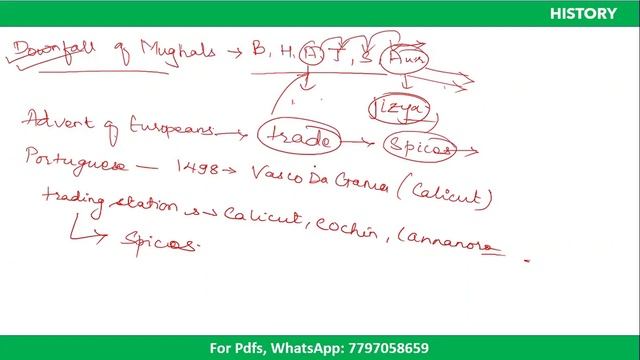 HISTORY
Downfall of Mughals → B, H, A, J, S, Aur
Jizya
Advent of Europeans → trade → Spices →
Portuguese — 1498 → Vasco Da Gama (Calicut)
trading station → Calicut, Cochin, Cannanore
→ Spices.
For Pdfs, WhatsApp: 7797058659